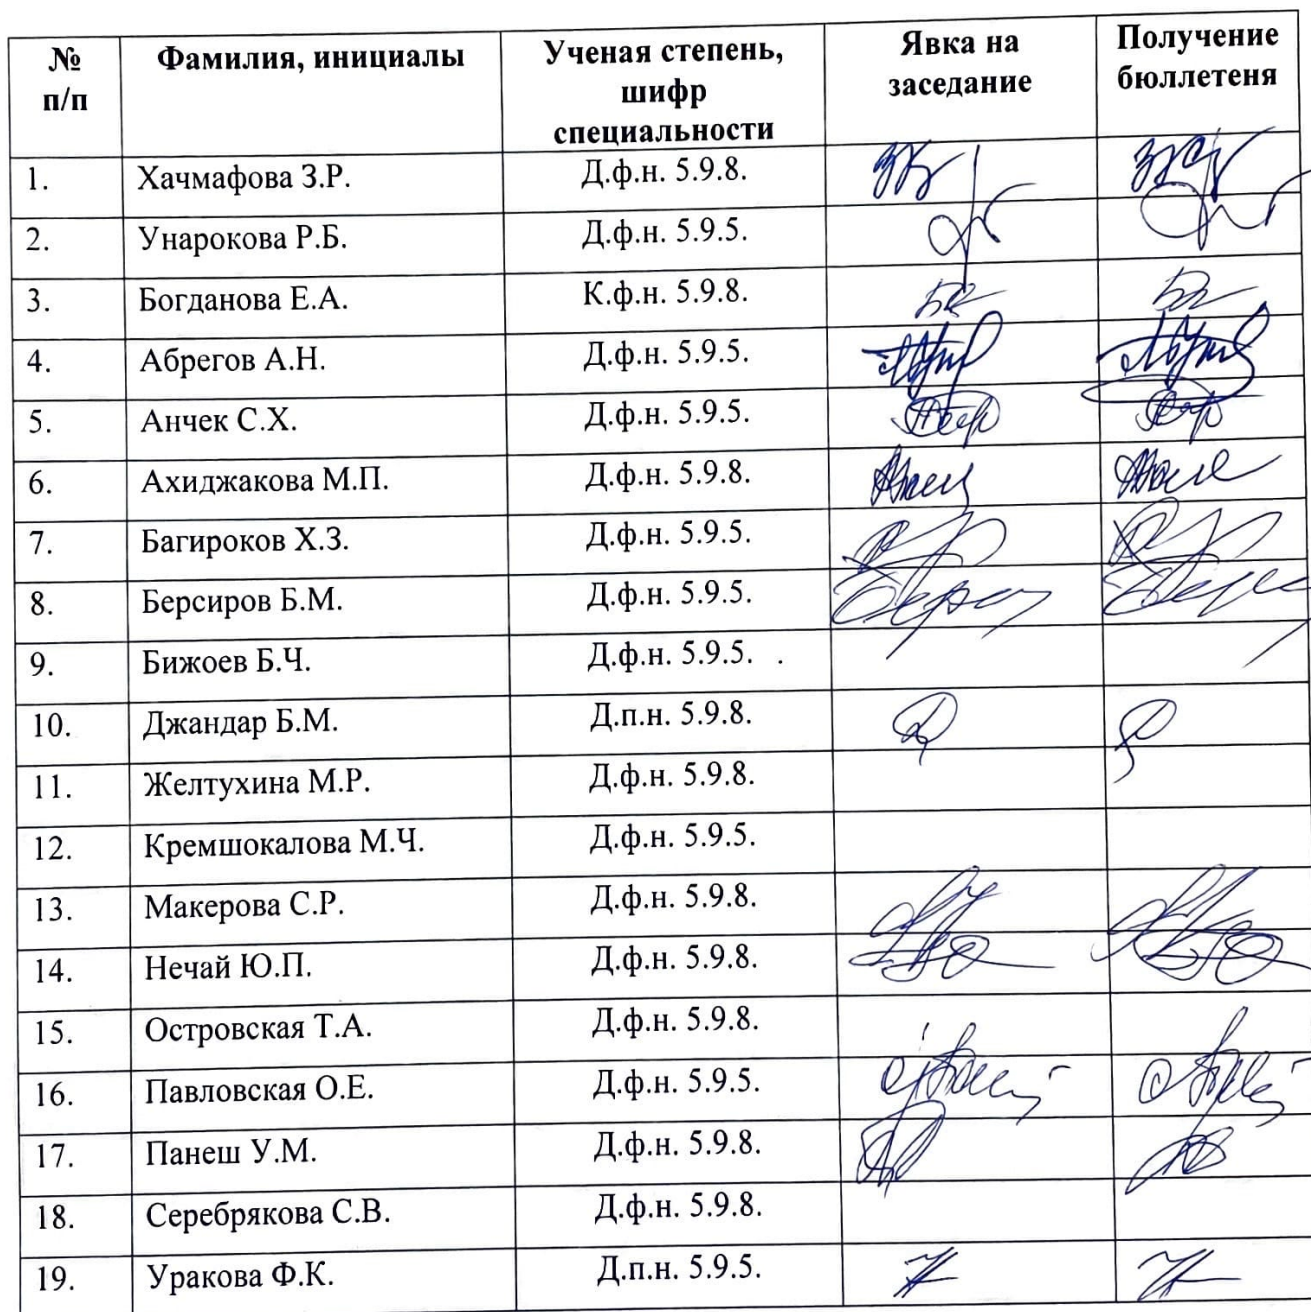 № п/п Фамилия, инициалы Ученая степень, шифр специальности Явка на заседание Получение бюллетеня
1. Хачмафова З.Р. Д.ф.н. 5.9.8.
2. Унарокова Р.Б. Д.ф.н. 5.9.5.
3. Богданова Е.А. К.ф.н. 5.9.8.
4. Абрегов А.Н. Д.ф.н. 5.9.5.
5. Анчек С.Х. Д.ф.н. 5.9.5.
6. Ахиджакова М.П. Д.ф.н. 5.9.8.
7. Багироков Х.З. Д.ф.н. 5.9.5.
8. Берсиров Б.М. Д.ф.н. 5.9.5.
9. Бижоев Б.Ч. Д.ф.н. 5.9.5. .
10. Джандар Б.М. Д.п.н. 5.9.8.
11. Желтухина М.Р. Д.ф.н. 5.9.8.
12. Кремшокалова М.Ч. Д.ф.н. 5.9.5.
13. Макерова С.Р. Д.ф.н. 5.9.8.
14. Нечай Ю.П. Д.ф.н. 5.9.8.
15. Островская Т.А. Д.ф.н. 5.9.8.
16. Павловская О.Е. Д.ф.н. 5.9.5.
17. Панеш У.М. Д.ф.н. 5.9.8.
18. Серебрякова С.В. Д.ф.н. 5.9.8.
19. Уракова Ф.К. Д.п.н. 5.9.5.